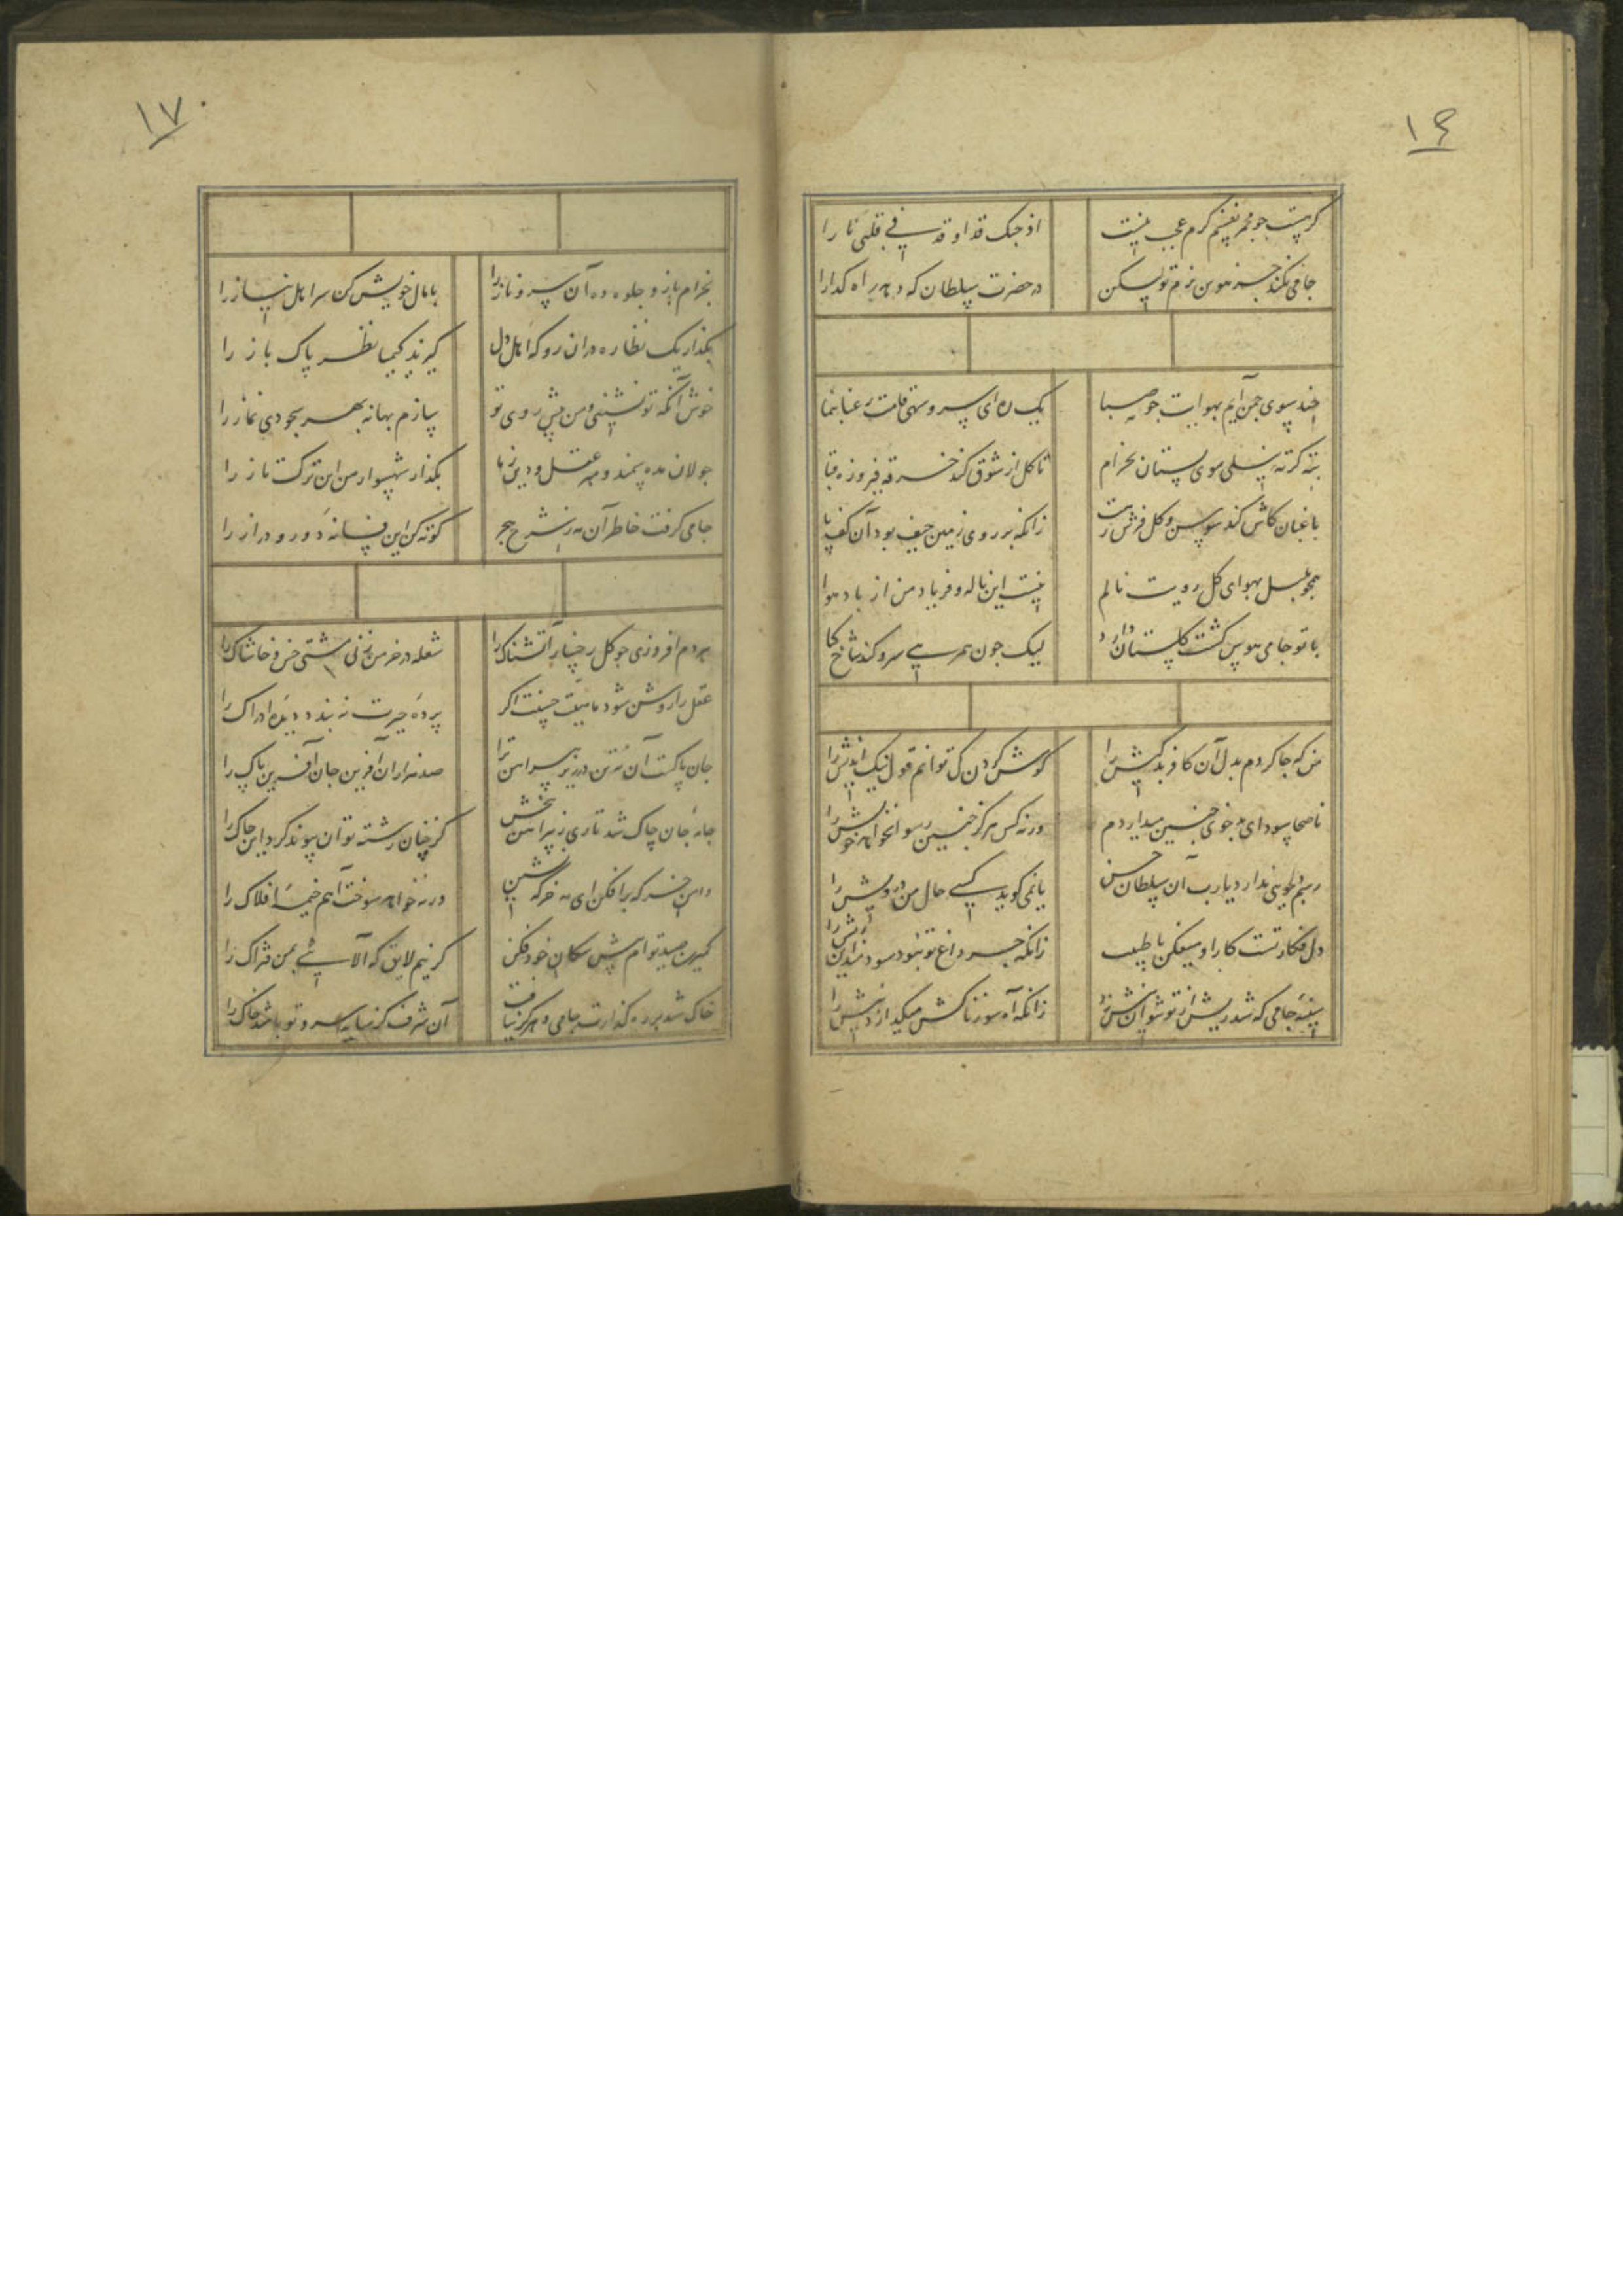 ١٤
کر هست جو مجمر نفسم کرم عجب نیست
از جنک قد اوقد فی قلبی نارا
جامی نکند جز هوس بزم تو لیکن
در حضرت سلطان که دهد راه کدارا
چند سوی جمن آیم بهوایت جو صبا
یک ره ای سرو سهی قامت رعنا بنما
بته کرته نیلی سوی بستان بخرام
تا کل از شوق کند خرقه فیروزه قبا
باغبان کاش کند سوسن و کل فرش رهت
زانکه بر روی زمین حیف بود آن کف پا
همجو بلبل بهوای کل رویت نالم
نیست این ناله و فریاد من از باد هوا
با تو جامی هوس کشت کلستان دارد
لیک جون همرهی سرو کند شاخ کیا
من که جا کردم بدل آن کافر بدکیش را
کوش کردن کی توانم قول نیک اندیش را
ناصحا سودای بدخوی جنین میداردم
ورنه کس هرکز جنین رسوا نخواهد خویش را
رسم دلجویی ندارد یارب آن سلطان حسن
یا نمی کوید کسی حال من درویش را
دل فکار تست کار او میفکن با طبیب
زانکه جز داغ تو نبود سودمند این ریش را
سینه جامی که شد ریش از تو شوان
زانکه آه سوزناکش میکدازد نیش را
١٧
بخرام باز و جلوه ده آن سرو ناز را
بامال خویش کن سر اهل نیاز را
بکذار یک نظاره در ان رو که اهل دل
کیرند کیمیا نظر پاک باز را
خوش آنکه تو نشینی و من پیش روی تو
سازم بهانه بهر سجودی نماز را
جولان مده سمند و مبر عقل و دین ز ما
بکذار شهسوار من این ترکتاز را
جامی کرفت خاطر آن مه ز شرح هجر
کوته کن این فسانه دور و دراز را
هر دم افروزی جو کل رخسار آتشناک را
شعله در خرمن زنی مشتی خس و خاشاک را
عقل را روشن شود ماهیت حسنت اکر
پرده حیرت نه بندد دیده ادراک را
جان پاکست آن نه تن در زیر پیراهن ترا
صد هزاران آفرین جان آفرین پاک را
جامه جان چاک شد تاری ز پیراهن ببخش
کز چنان رشته توان پیوند کرد این چاک را
دامن خرکه برافکن ای مه خرکه نشین
ورنه خواهد سوخت آهم خیمه افلاک را
کمترین صید توام پیش سکان خود فکن
کر نیم لایق که آلایی بمن فتراک را
خاک شد بر رهکذارت جامی و هرکز نیافت
آن شرف کز سایه سرو تو باشد خاک را